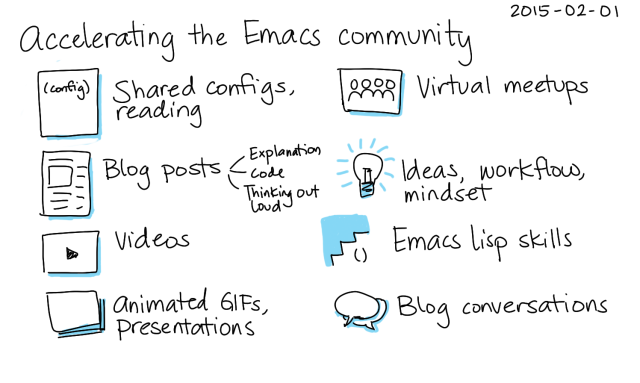 2015-02-01
Accelerating the Emacs community
(config)
Shared configs,
reading
Blog posts
Explanation
code
Thinking out
loud
Videos
animated GIFs,
presentations
Virtual meetups
Ideas, workflow,
mindset
()
Emacs lisp skills
Blog conversations